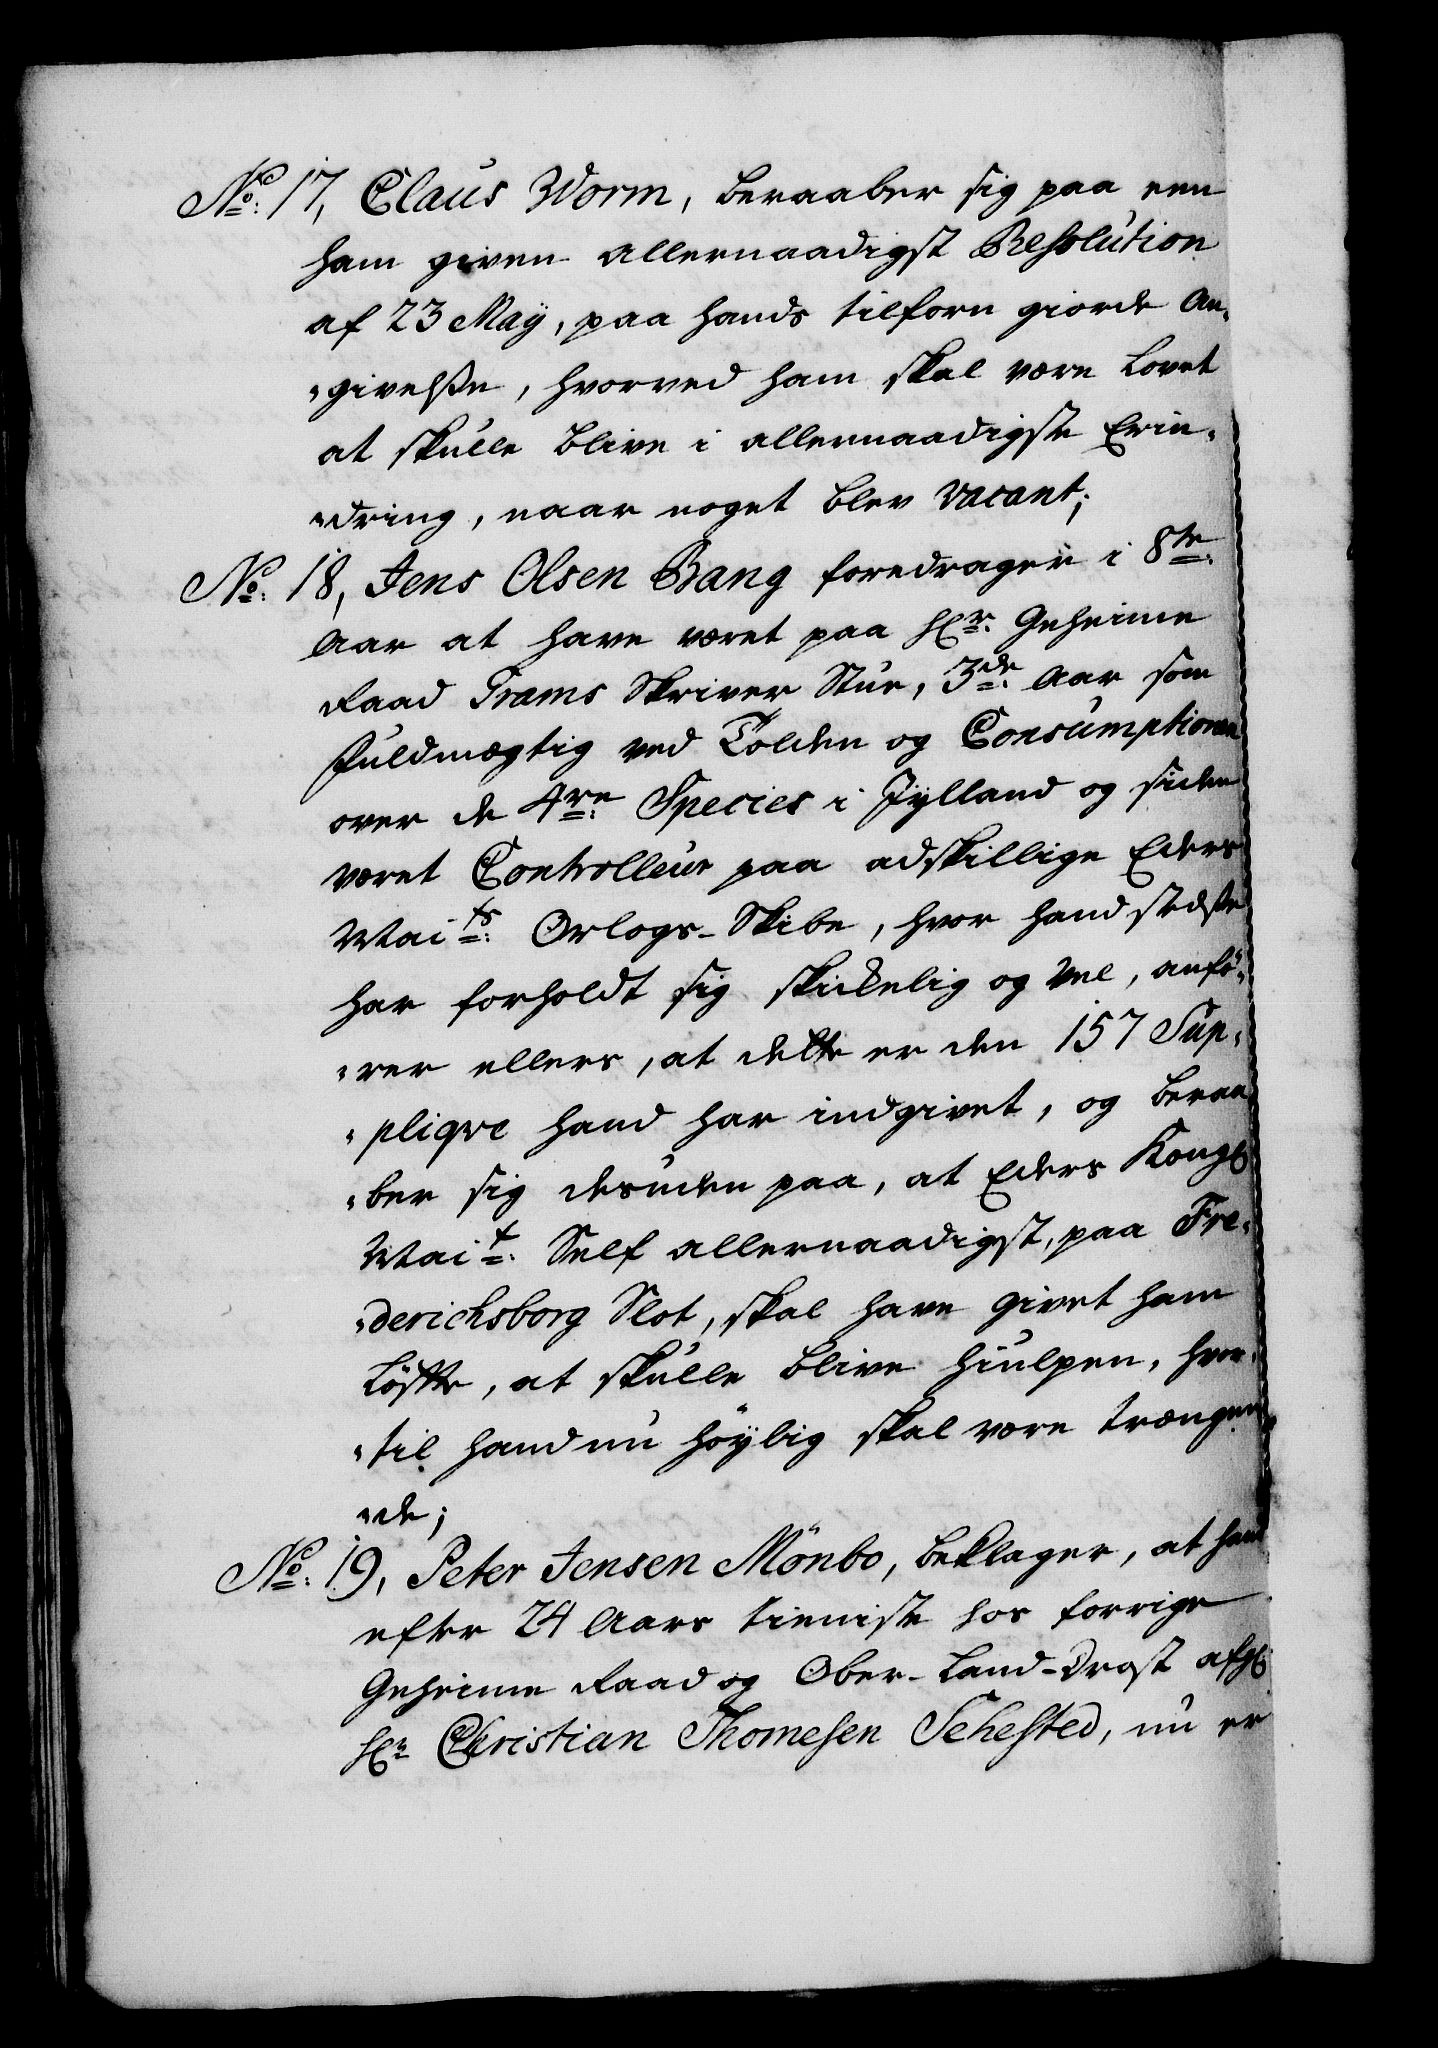 No: 17, Claus Worm, beraaber sig paa een
ham given allernaadigst Resolution
af 23 Maÿ, paa hands tilforn giorde An-
-givelsse, hvorved ham skal være lovet
at skulle blive i allernaadigste Erin-
-dring, naar noget blev vacant;
No: 18, Jens Olsen Bang foredrager i 8te
Aar at have været paa Hr. Geheime
Raad Trams Skriver Stue, 3de Aar som
Fuldmægtig ved Tolden og Consumptionen
over de 4re Species i Jylland og siden
været Controlleur paa adskillige Eders
Maits: Orlogs-Skibe, hvor hand stedsse
har forholdt sig skickelig og vel, anfö-
-rer ellers, at dette er den 157 Sup-
-plique hand har indgivet, og beraa
-ber sig desuden paa, at Eders Kongl
Mait: Self allernaadigst, paa Fre-
-derichsborg Slot, skal have givet ham
Löffte, at skulle blive hiulpen, hvor-
-til hand nu höÿlig skal være trængen
-de;
No: 19, Peter Jensen Mönbo, beklager, at hand
efter 24 Aars tieniste hos forrige
Geheime Raad og Ober-Land-Drost afgl
Hr Christian Thomesen Sehested, nu er